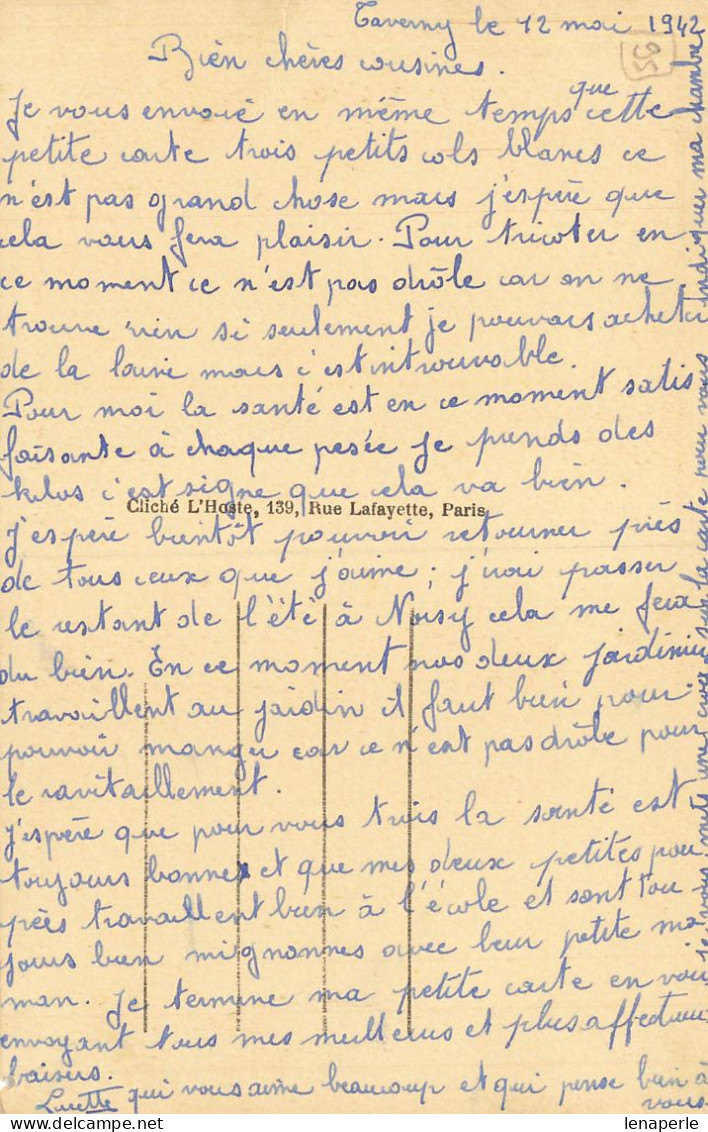 Taverny le 12 mai 1942
95
Bien chères cousines.
Je vous envoie en même temps que cette
petite carte trois petits cols blancs ce
n'est pas grand chose mais j'espère que
cela vous fera plaisir. Pour tricoter en
ce moment ce n'est pas drôle car on ne
trouve rien si seulement je pouvais acheter
de la laine mais c'est introuvable.
Pour moi la santé est en ce moment satis
faisante à chaque pesée je prends des
kilos c'est signe que cela va bien.
Cliché L'Hoste, 139, Rue Lafayette, Paris
J'espère bientôt pouvoir retourner près
de tous ceux que j'aime; j'irai passer
le restant de l'été à Noisy cela me fera
du bien. En ce moment nos deux jardiniers
travaillent au jardin il faut bien pour
pouvoir manger car ce n'est pas drôle pour
le ravitaillement.
J'espère que pour vous trois la santé est
toujours bonne et que mes deux petites pou
pées travaillent bien à l'école et sont tou
jours bien mignonnes avec leur petite ma
man. Je termine ma petite carte en vous
envoyant tous mes meilleurs et plus affectueux
baisers.
Lucette qui vous aime beaucoup et qui pense bien à
vous.
je vous mets une croix sur la carte pour vous indiquer ma chambre
lenaperle